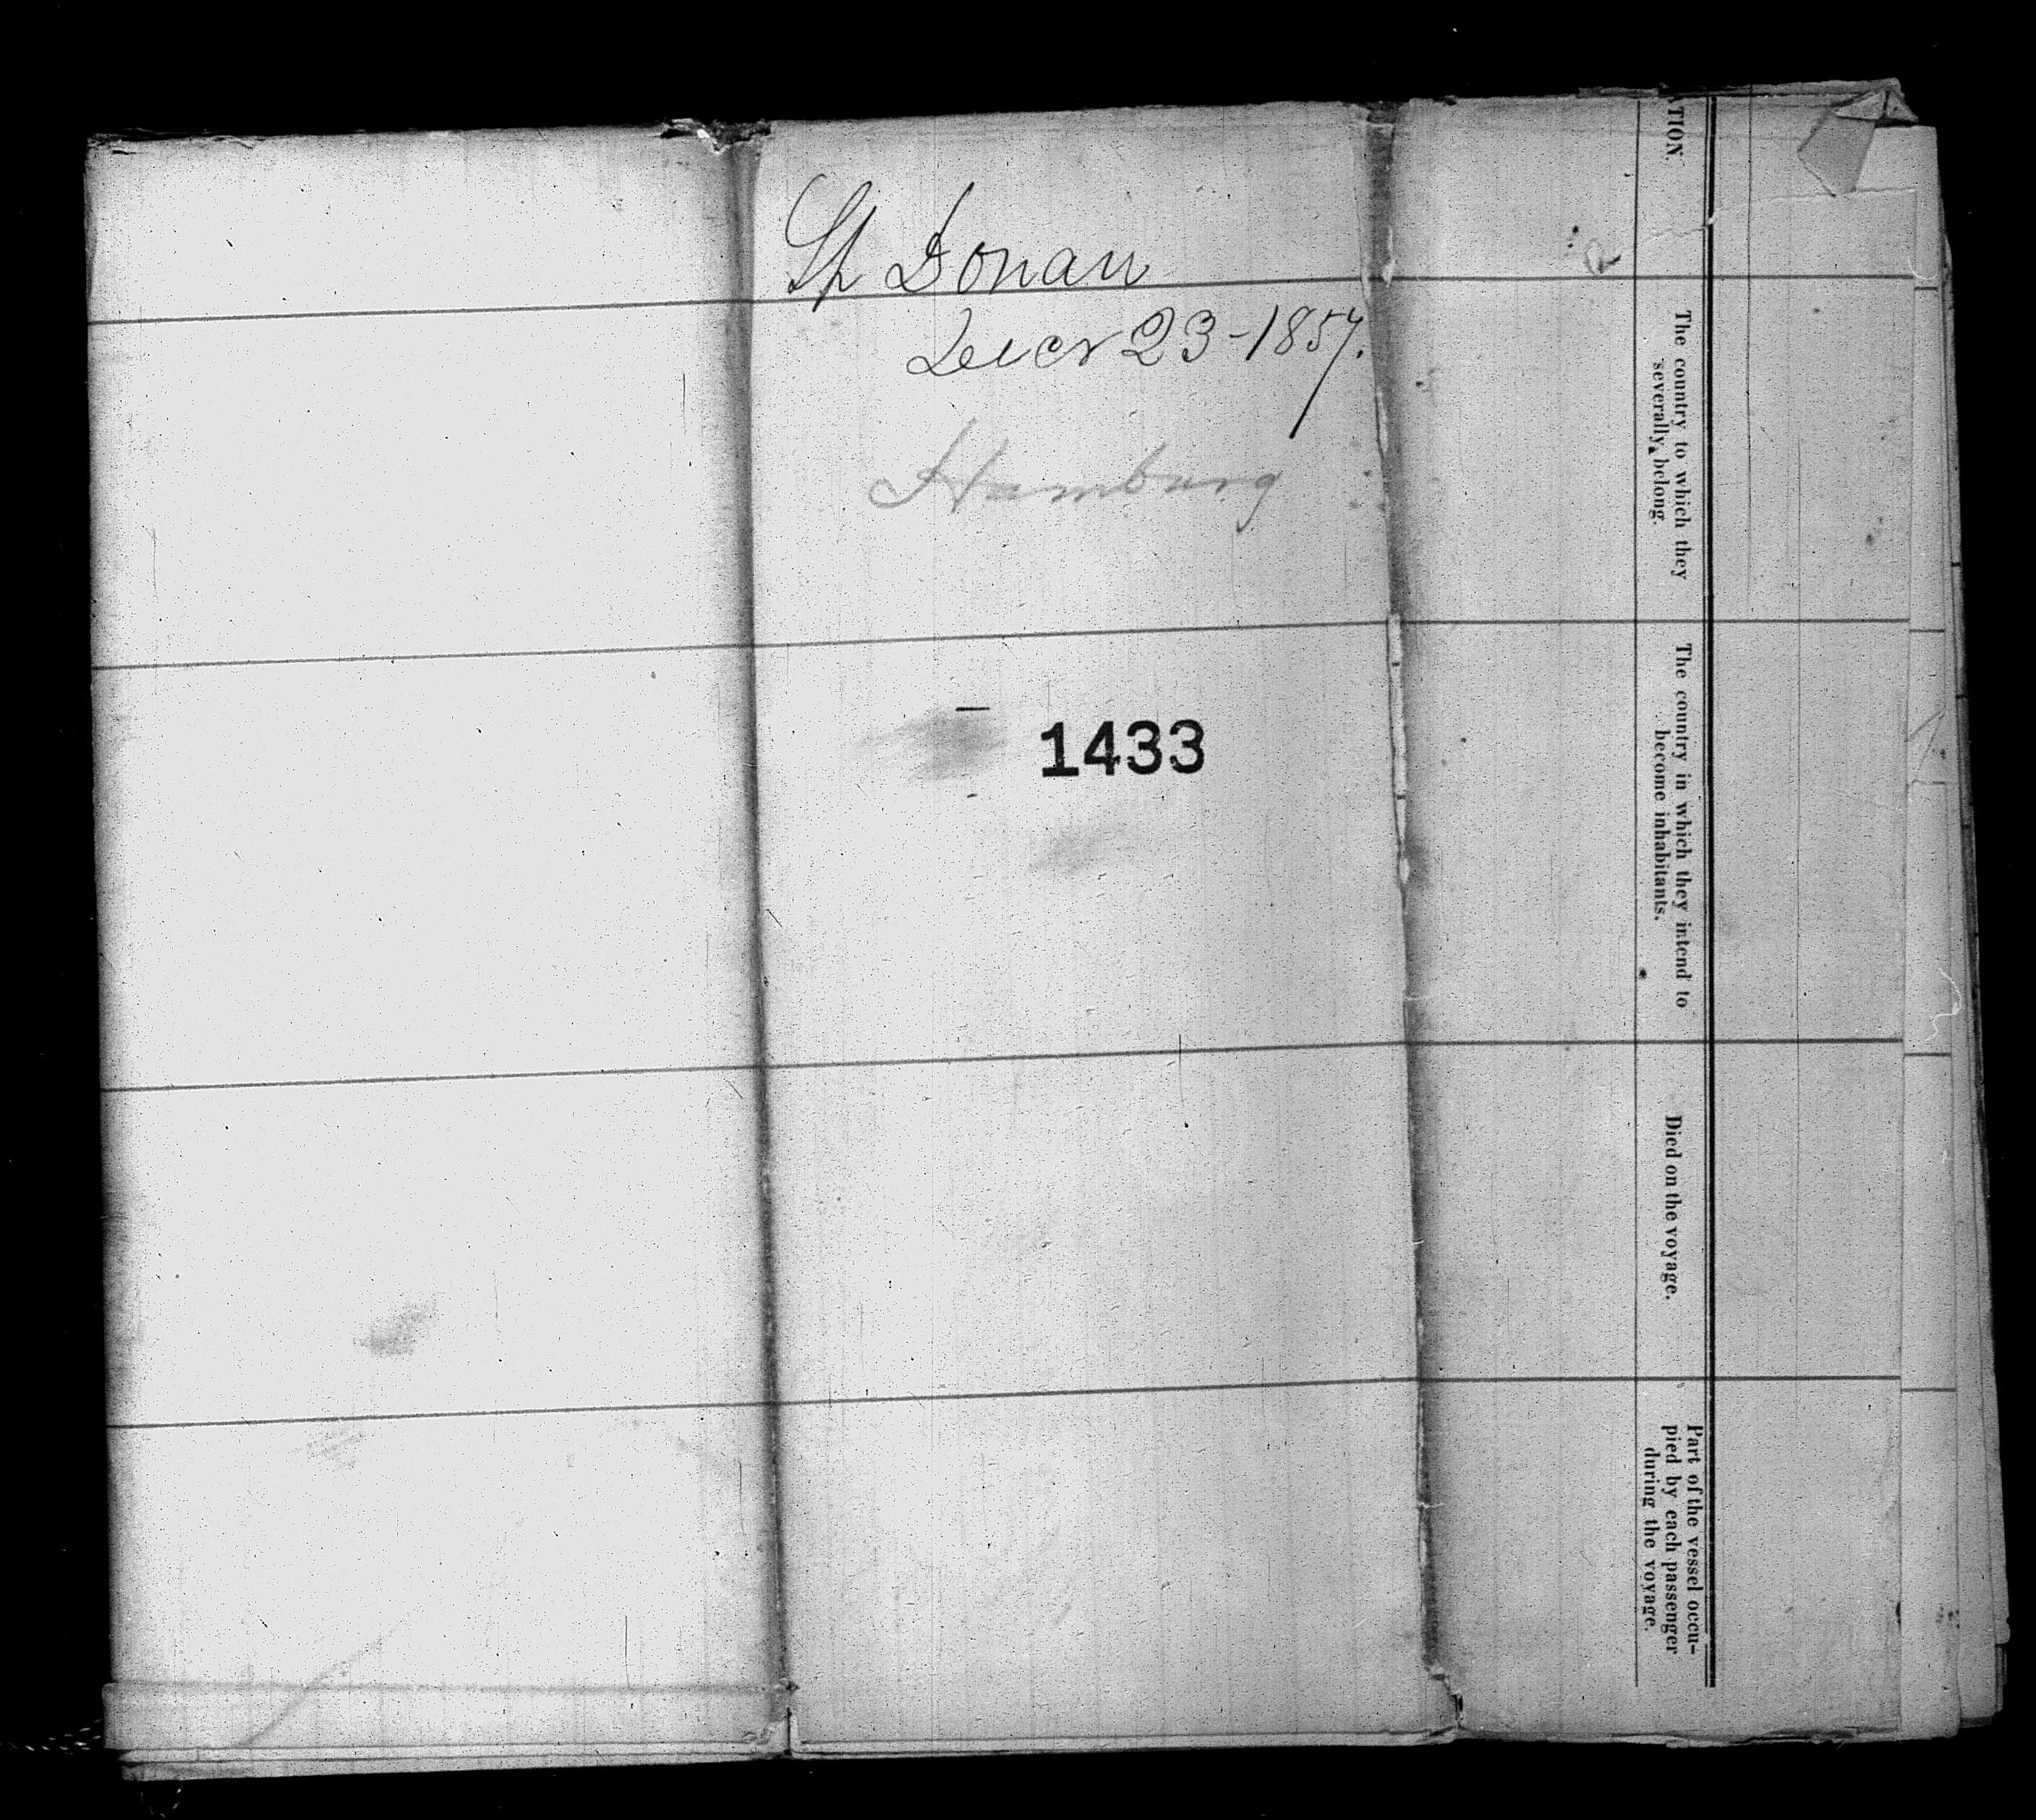 Sh Donau
Decr 23-1857.
Hamburg
1433
ATION.
The country to which they
severally belong.
The country in which they intend to
become inhabitants.
Died on the voyage.
Part of the vessel occu-
pied by each passenger
during the voyage.